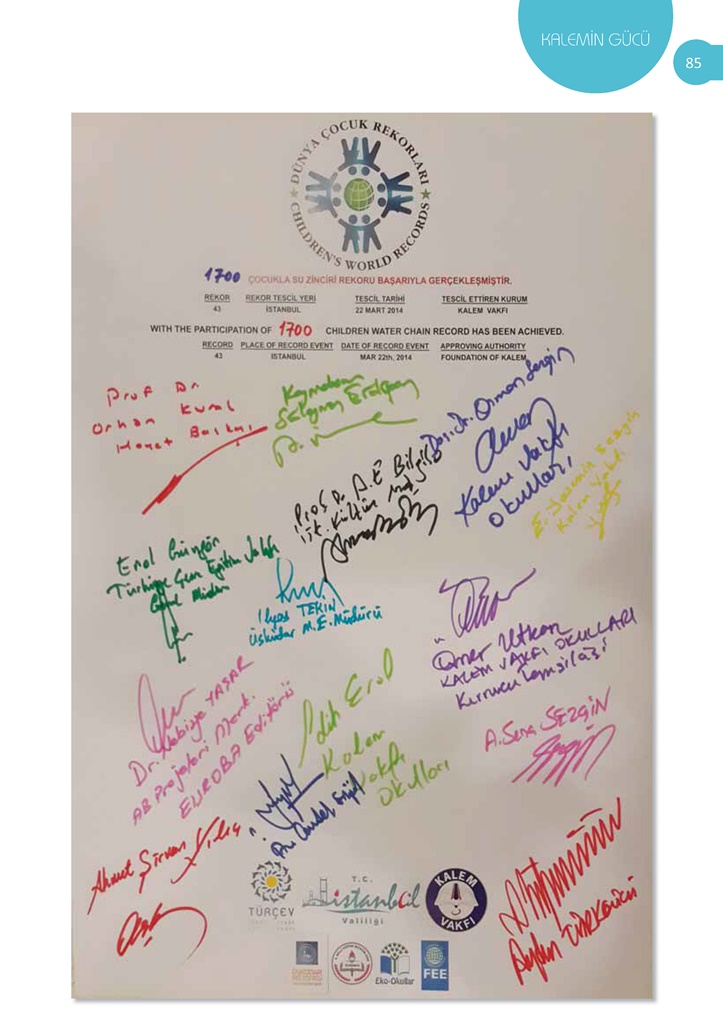 KALEMİN GÜCÜ
85
DÜNYA ÇOCUK REKORLARI
CHILDREN'S WORLD RECORDS
1700 ÇOCUKLA SU ZİNCİRİ REKORU BAŞARIYLA GERÇEKLEŞMİŞTİR.
REKOR REKOR TESCİL YERİ TESCİL TARİHİ TESCİL ETTİREN KURUM
43 İSTANBUL 22 MART 2014 KALEM VAKFI
WITH THE PARTICIPATION OF 1700 CHILDREN WATER CHAIN RECORD HAS BEEN ACHIEVED.
RECORD PLACE OF RECORD EVENT DATE OF RECORD EVENT APPROVING AUTHORITY
43 ISTANBUL MAR 22th, 2014 FOUNDATION OF KALEM
Prof Dr
Orhan Kural
Kaymakam
Süleyman Erdoğan
Doç. Dr. Osman Sezgin
Kalem Vakfı
Okulları
Prof. Dr. A.E Bilgili
İst. Kültür
Sezgin
Kalem Vakfı
Erol Güngör
Türkiye Çevre Eğitim Vakfı
Genel Müdürü
İlyas TEKİN
Üsküdar M.E. Müdürü
Ömer Utkan
KALEM VAKFI OKULLARI
Kurucu Temsilcisi
Dr. YAŞAR
AB Projeleri Merk.
Editörü
Erol
Kalem
Vakfı
Okulları
A. Sena SEZGİN
Ahmet Şirvan
TÜRÇEV
T.C.
istanbul
Valiliği
KALEM
VAKFI
Eko-Okullar
FEE